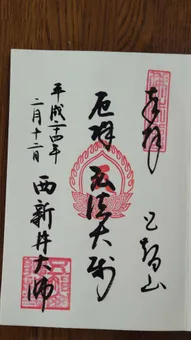 奉拝
五智山
厄除 弘法大師
平成二十四年
二月十二日
西新井大師